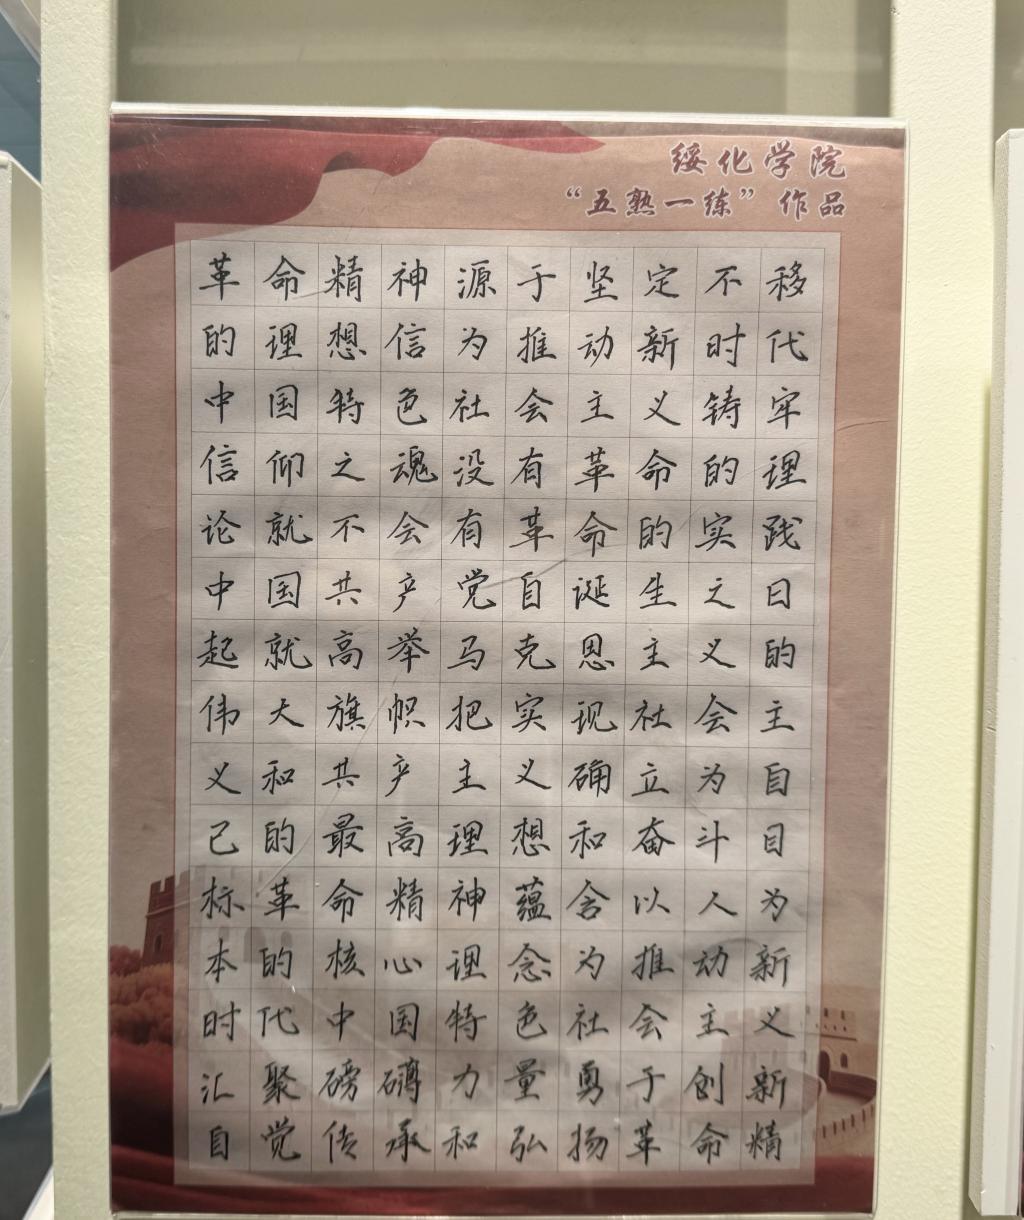 绥化学院
“五熟一练”作品
革命精神源于坚定不移
的理想信为推动新时代
中国特色社会主义铸牢
信仰之魂没有革命的理
论就不会有革命的实践
中国共产党自诞生之日
起就高举马克思主义的
伟大旗帜把实现社会主
义和共产主义确立为自
己的最高理想和奋斗目
标革命精神蕴含以人为
本的核心理念为推动新
时代中国特色社会主义
汇聚磅礴力量勇于创新
自觉传承和弘扬革命精